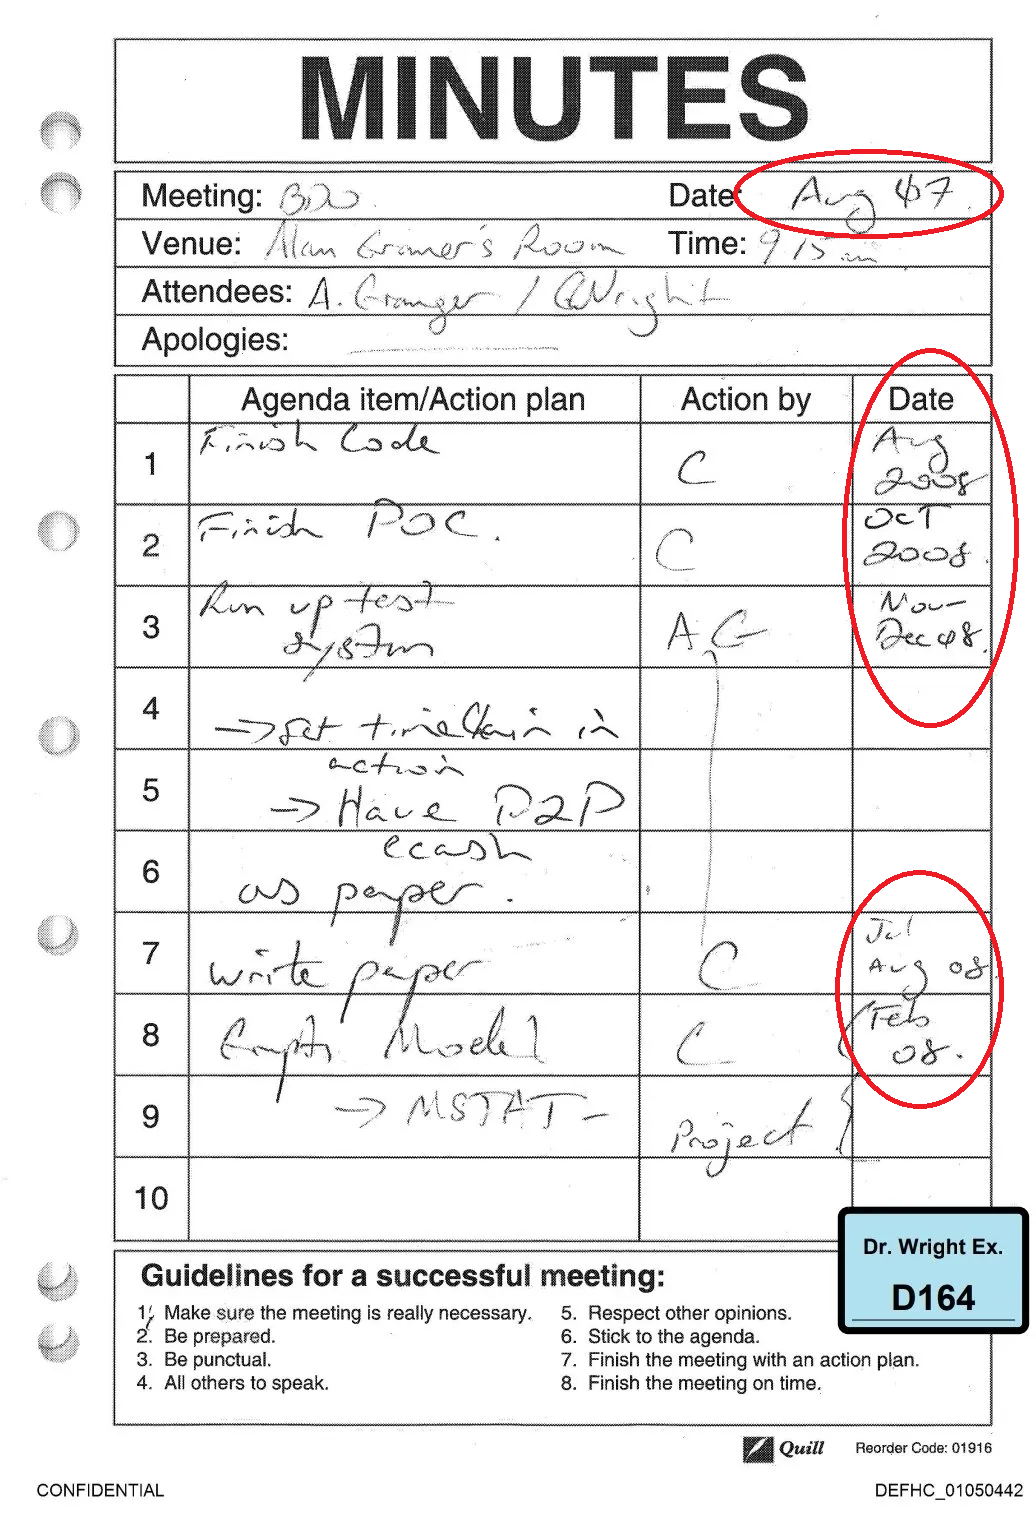 MINUTES
Meeting: BDO Date: Aug 07
Venue: Alan Granger's Room Time: 9 15 am
Attendees: A. Granger / C Wright
Apologies:
Agenda item/Action plan Action by Date
1 Finish Code C Aug 2008
2 Finish POC. C OCT 2008.
3 Run up test system AG Nov - Dec 08.
4 → Get timechain in
5 action
→ Have P2P
6 ecash
as paper.
7 write paper C Jul Aug 08.
8 Empty Model C Feb 08.
9 → MSTAT - Project
10
Dr. Wright Ex.
D164
Guidelines for a successful meeting:
1. Make sure the meeting is really necessary.
2. Be prepared.
3. Be punctual.
4. All others to speak.
5. Respect other opinions.
6. Stick to the agenda.
7. Finish the meeting with an action plan.
8. Finish the meeting on time.
Quill Reorder Code: 01916
CONFIDENTIAL DEFHC_01050442